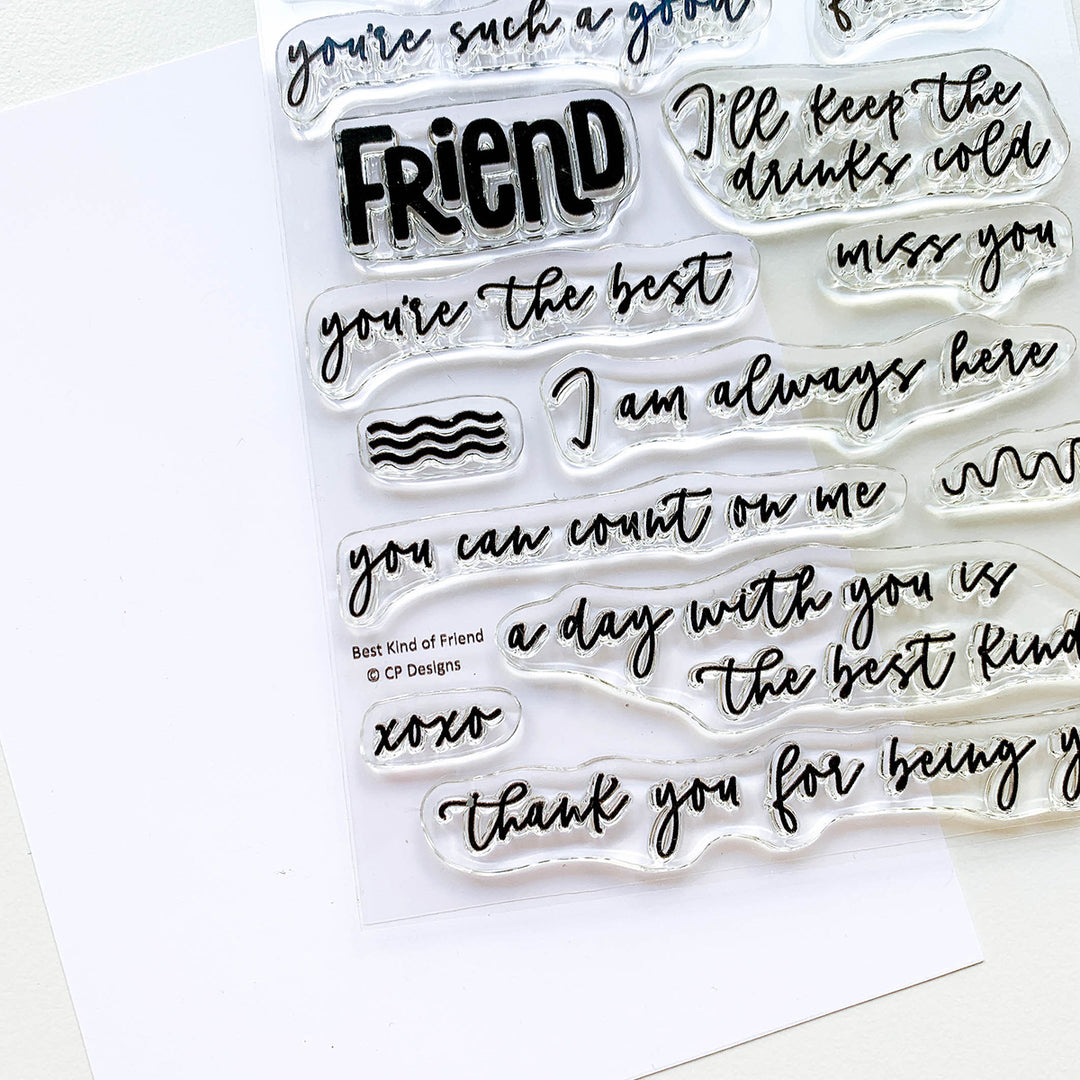 you're such a good
FRiEnD
I'll keep the
drinks cold
miss you
you're the best
I am always here
you can count on me
a day with you is
the best kind
Best Kind of Friend
© CP Designs
xoxo
thank you for being